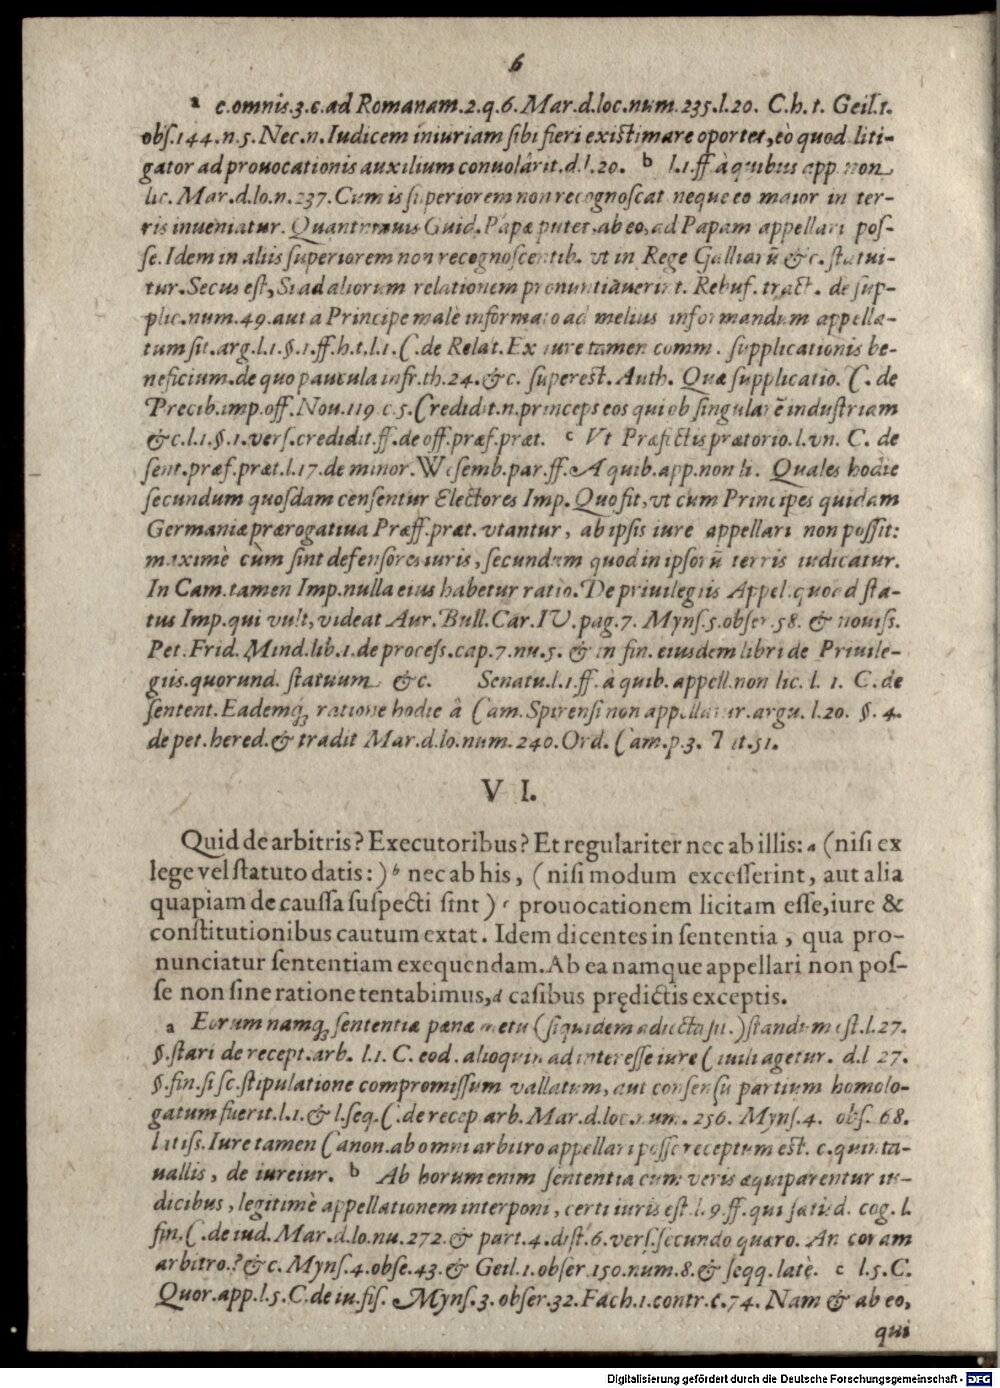 6
a c.omnis.3.c.ad Romanam.2.q.6. Mar.d.loc.num.235.l.20. C.h.t. Geil.1.
obſ.144.n.5. Nec.n.Iudicem iniuriam ſibi fieri exiſtimare oportet,eò quod liti-
gator ad prouocationis auxilium conuolârit.d.l.20. b l.1.ff à quibus app non
lic. Mar.d.lo.n.237.Cum is ſuperiorem non recognoſcat neque eo maior in ter-
ris inueniatur. Guid.Papæ putet,ab eo,ad Papam appellari poſ-
ſe.Idem in aliis ſuperiorem non recognoſcentib. vt in Rege Galliarũ &c.ſtatui-
tur.Secus eſt,Si ad aliorum relationem pronuntiauerint. Rebuf.tract. de ſup-
plic.num.49.aut a Principe malè informato ad melius informandum appella-
tum ſit.arg.l.1.§.1.ff.h.t.l.1.C.de Relat.Ex iure tamen comm. ſupplicationis be-
neficium.de quo paucula infr.th.24.&c. ſupereſt. Auth. Quæ ſupplicatio. C. de
Precib.imp.off.Nou.119 c.5.Credidit.n.princeps eos qui ob ſingularẽ induſtriam
&c.l.1.§.1.verſ.credidit.ff.de off.præf.præt. c Vt Præfectis prætorio.l.vn. C. de
ſent.præf.præt.l.17.de minor.Weſemb.par.ff.A quib.app.non li. Quales hodie
ſecundum quoſdam cenſentur Electores Imp.Quo fit,vt cum Principes quidam
Germaniæ prærogatiua Præff.præt.vtantur, ab ipſis iure appellari non poſſit:
maximè cùm ſint defenſores iuris,ſecundum quod in ipſorũ terris iudicatur.
In Cam.tamen Imp.nulla eius habetur ratio.De priuilegiis Appel.quoad ſta-
tus Imp.qui vult,videat Aur.Bull.Car.IV.pag.7. Mynſ.5.obſer.58. & nouiſſ.
Pet.Frid.Mind.lib.1.de proceſſ.cap.7.nu.5. & in fin. eiuſdem libri de Priuile-
giis.quorund. ſtatuum &c. Senatu.l.1.ff.à quib.appell.non lic. l. 1. C.de
ſentent.Eademq́ ratione hodie â Cam.Spirenſi non appellatur.argu. l.20. §. 4.
de pet.hered.& tradit Mar.d.lo.num.240.Ord. Cam.p.3. Tit.51.
VI.
Quid de arbitris? Executoribus? Et regulariter nec ab illis: a (niſi ex
lege vel ſtatuto datis:) b nec ab his, (niſi modum exceſſerint, aut alia
quapiam de cauſſa ſuſpecti ſint) c prouocationem licitam eſſe,iure &
conſtitutionibus cautum extat. Idem dicentes in ſententia, qua pro-
nunciatur ſententiam exequendam.Ab ea namque appellari non poſ-
ſe non ſine ratione tentabimus,d caſibus prędictis exceptis.
a Eorum namq́ ſententiæ pænæ metu (ſiquidem adiecta ſit.)ſtandum eſt.l.27.
§.ſtari de recept.arb. l.1. C. eod. alioquin ad intereſſe iure Ciuili agetur. d.l 27.
§.fin.ſi ſc.ſtipulatione compromiſſum vallatum, aut conſenſu partium homolo-
gatum fuerit.l.1.& l.ſeq.C.de recep arb. Mar.d.loc.num. 256. Mynſ.4. obſ. 68.
Latiſſ.Iure tamen Canon.ab omni arbitro appellari poſſe receptum eſt. c.quinta-
uallis, de iureiur. b Ab horum enim ſententia cum veris æquiparentur iu-
dicibus, legitimè appellationem interponi, certi iuris eſt.l.9.ff.qui ſatisd. cog. l.
fin.C.de iud.Mar.d.lo.nu.272.& part.4.diſt.6.verſ.ſecundo quæro. An coram
arbitro.?&c. Mynſ.4.obſe.43.& Geil.1.obſer.150.num.8.& ſeqq.latè. c l.5.C.
Quor.app.l.5.C.de iu.fiſ. Mynſ.3.obſer.32.Fach.1.contr.c.74. Nam & ab eo,
qui
Digitalisierung gefördert durch die Deutsche Forschungsgemeinschaft - DFG